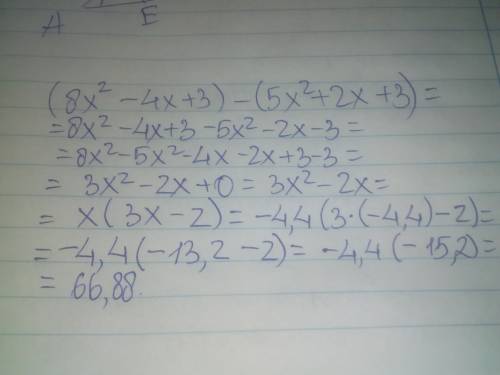 A E
(8x² -4x+3)-(5x²+2x+3)=
=8x² -4x+3 -5x² -2x-3=
=8x²-5x²-4x-2x+3-3=
= 3x²-2x+0= 3x²-2x=
= x(3x-2)= -4,4(3·(-4,4)-2)=
=-4,4(-13,2-2)= -4,4(-15,2)=
= 66,88.